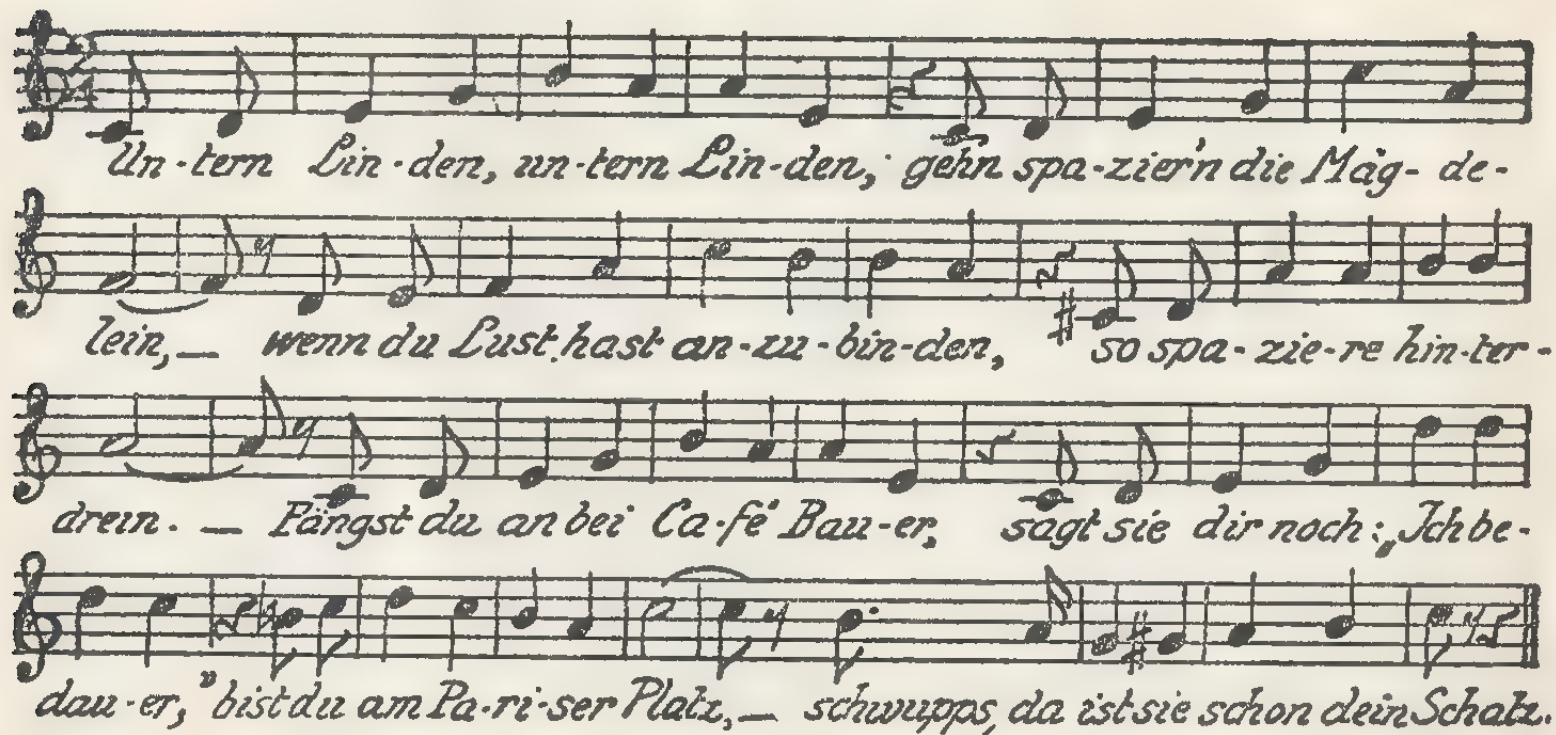 Un-tern Lin-den, un-tern Lin-den, gehn spa-zier'n die Mäg-de-
lein,— wenn du Lust hast an-zu-bin-den, so spa-zie-re hin-ter-
drein.— Fängst du an bei Ca-fé Bau-er, sagt sie dir noch: „Ich be-
dau-er," bist du am Pa-ri-ser Platz,— schwupps, da ist sie schon dein Schatz.